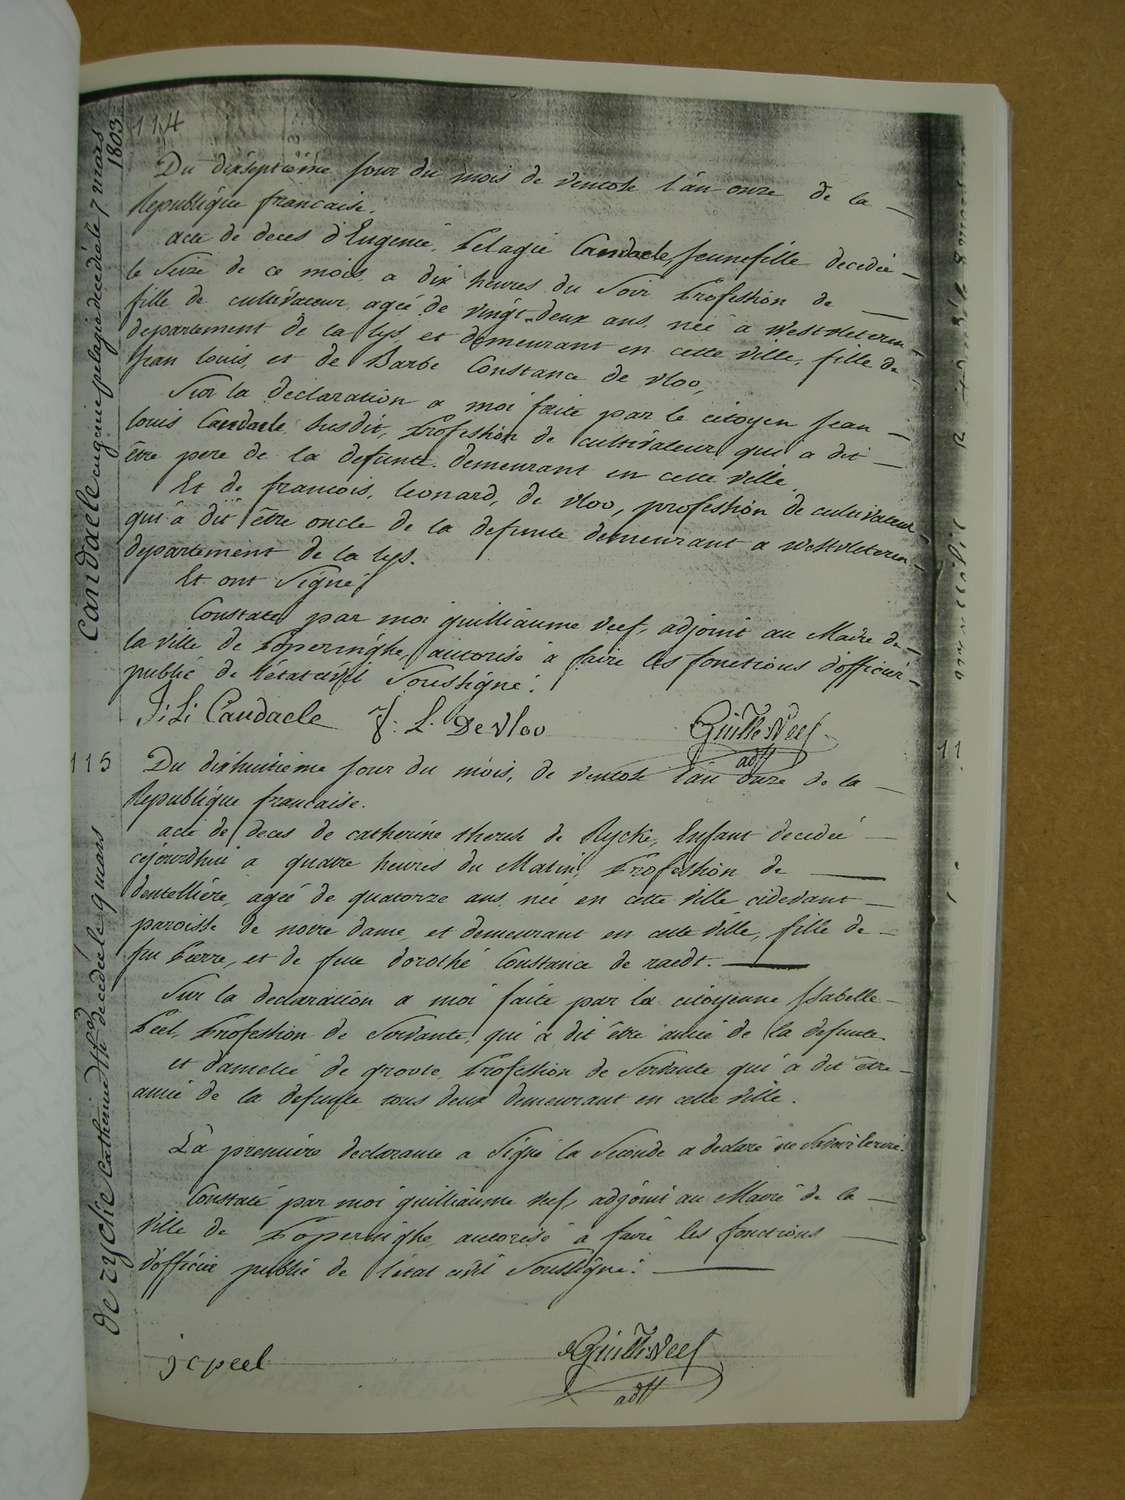 114
Candaele eugenie pelagie decedé le 7 mars 1803
Du dixseptième jour du mois de ventose l'an onze de la
Republique francaise.
acte de deces d'Eugenie, Pelagie Candaele, jeunefille decedée
le Seize de ce mois a dix heures du Soir Profession de
fille de cultivateur agée de vingt-deux ans née a westvleteren
departement de la lys et demeurant en cette ville, fille de
jean louis, et de Barbe Constance de vloo,
Sur la declaration a moi faite par le citoyen jean
louis Candaele susdit, Profession de cultivateur qui a dit
être pere de la defunte demeurant en cette ville
Et de francois, leonard, de vloo, profession de cultivateur
qui a dit être oncle de la defunte demeurant a westvleteren
departement de la lys.
Et ont Signé
Constaté par moi guilliaume neef, adjoint au Maire de
la ville de Poperinghe, autorisé a faire les fonctions d'officier
publié de l'état civil Soussigné.
J: L: Candaele f. L. De vloo Guille Neef
adjt
115
de rycke Catherine Th decedée le 9 mars
Du dixhuitième jour du mois, de ventose l'an onze de la
Republique francaise.
acte de deces de catherine therese de Rycke, Enfant decedeé
cejourdhui a quatre heures du Matin, Profession de
dentellière, agée de quatorze ans née en cette ville cidevant
paroisse de notre dame, et demeurant en cette ville, fille de
feu Pierre, et de feue dorothé Constance de raedt.
Sur la declaration a moi faite par la citoyenne Isabelle
Peel, Profession de Servante, qui a dit être amie de la defunte
et d'amelie de groote Profession de Servante qui a dit être
amie de la defunte tous deux demeurant en cette ville.
La première declarante a Signé la Seconde a declaré ne Savoir Ecrire.
Constaté par moi guilliaume neef, adjoint au Maire de la
ville de Poperinghe, autorisé a faire les fonctions
d'officier publié de l'état civil Soussigné.
j c peel Guille Neef
adjt
11